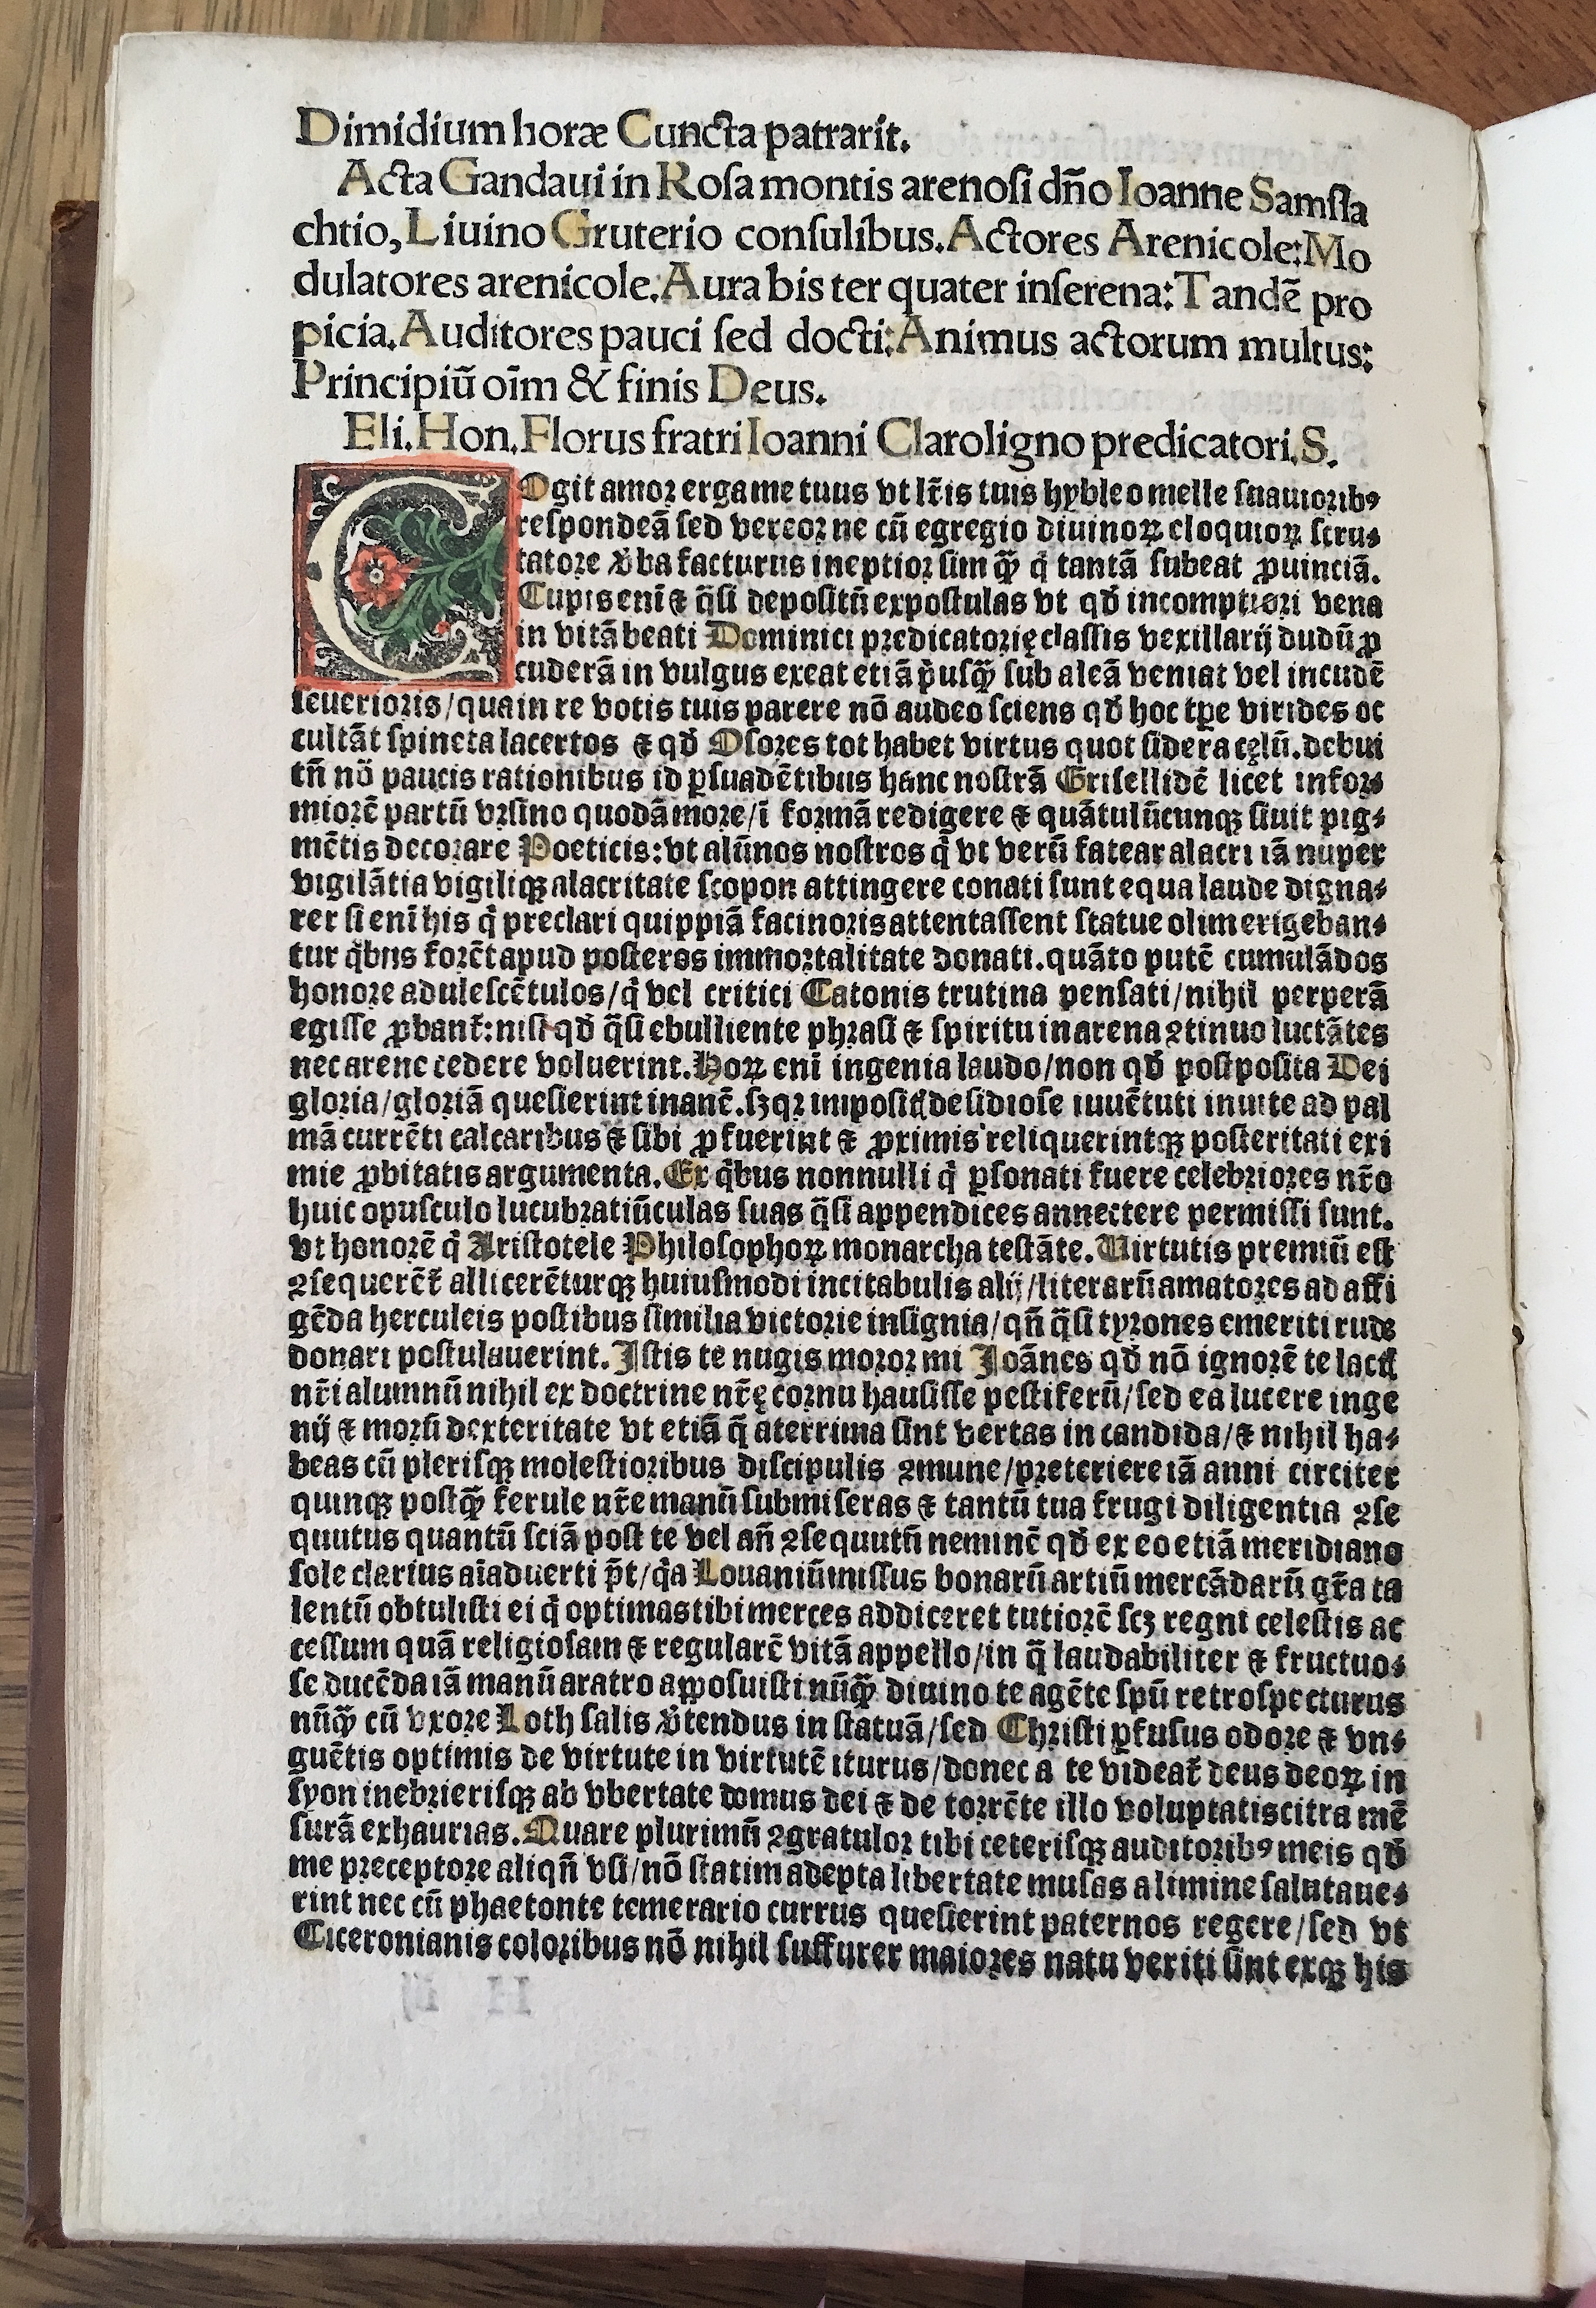 Dimidium horæ Cuncta patrarit.
Acta Gandaui in Roſa montis arenoſi dn̄o Ioanne Samſla
chtio, Liuino Gruterio conſulibus. Actores Arenicole: Mo
dulatores arenicole. Aura bis ter quater inſerena: Tandē pro
picia. Auditores pauci ſed docti: Animus actorum multus:
Principiū oīm & finis Deus.
Eli. Hon. Florus fratri Ioanni Claroligno predicatori. S.
COgit amor erga me tuus vt lr̄is tuis hybleo melle ſuauioribꝰ
reſpondeā ſed vereor ne cū egregio diuinoꝝ eloquioꝝ ſcru⸗
tatore v̓ba facturus ineptior ſim q̄ꝫ q̇ tantā ſubeat ꝓuinciā.
Cupis enī ⁊ q̄ſi depoſitū expoſtulas vt qd̓ incomptiori vena
in vitā beati Dominici predicatorię claſſis vexillarij dudū ꝓ
cuderā in vulgus exeat etiā p̓uſq̄ꝫ ſub aleā veniat vel incudē
ſeuerioris/ qua in re votis tuis parere nō audeo ſciens qd̓ hoc tꝑe virides oc
cultāt ſpineta lacertos ⁊ qd̓ Oſores tot habet virtus quot ſidera cęlū. debui
tn̄ nō paucis rationibus id ꝑſuadētibus hanc noſtrā Griſellidē licet infor⸗
miorē partū vrſino quodā more/ ī formā redigere ⁊ quātulūcunqꝫ ſiuit pig⸗
mētis decorare Poeticis: vt alūnos noſtros q̇ vt verū fatear alacri iā nuper
vigilātia vigiliqꝫ alacritate ſcopon attingere conati ſunt equa laude digna⸗
rer ſi enī his q̇ preclari quippiā facinoris attentaſſent ſtatue olim erigeban⸗
tur q̇bus forēt apud poſteros immortalitate donati. quāto putē cumulādos
honore aduleſcētulos/ q̇ vel critici Catonis trutina penſati/ nihil perperā
egiſſe ꝓbant᷑: niſi qd̓ q̄ſi ebulliente phraſi ⁊ ſpiritu in arena ꝯtinuo luctātes
nec arene cedere voluerint. Hoꝝ enī ingenia laudo/ non qd̓ poſtpoſita Dei
gloria/ gloriā queſierint inanē. ſꝫ qꝛ impoſitꝭ deſidioſe iuuētuti inuite ad pal
mā currēti calcaribus ⁊ ſibi ꝓfuerint ⁊ ꝓximis reliquerintqꝫ poſteritati exi
mie ꝓbitatis argumenta. Ex q̇bus nonnulli q̇ ꝑſonati fuere celebriores nr̄o
huic opuſculo lucubratiūculas ſuas q̄ſi appendices annectere permiſſi ſunt.
vt honorē q̇ Ariſtotele Philoſophoꝝ monarcha teſtāte. Virtutis premiū eſt
ꝯſequerēt᷑ allicerēturqꝫ huiuſmodi incitabulis alij/ literarū amatores ad affi
gēda herculeis poſtibus ſimilia victorie inſignia/ qn̄ q̄ſi tyrones emeriti rude
donari poſtulauerint. Iſtis te nugis moror mi Ioānes qd̓ nō ignorē te lactꝭ
nr̄i alumnū nihil ex doctrine nr̄ę cornu hauſiſſe peſtiferū/ ſed ea lucere inge
nij ⁊ morū dexteritate vt etiā q̄ aterrima ſint vertas in candida/ ⁊ nihil ha⸗
beas cū pleriſqꝫ moleſtioribus diſcipulis ꝯmune/ preteriere iā anni circiter
quinqꝫ poſtq̄ꝫ ferule nr̄e manū ſubmiſeras ⁊ tantū tua frugi diligentia ꝯſe
quutus quantū ſciā poſt te vel an̄ ꝯſequutū neminē qd̓ ex eo etiā meridiano
ſole clarius aīaduerti p̄t/ q̇a Louaniū miſſus bonarū artiū mercādarū gr̄a ta
lentū obtuliſti ei q̇ optimas tibi merces addiceret tutiorē ſcꝫ regni celeſtis ac
ceſſum quā religioſam ⁊ regularē vitā appello/ in q̄ laudabiliter ⁊ fructuo⸗
ſe ducēda iā manū aratro appoſuiſti nūq̄ꝫ diuino te agēte ſpū retroſpecturus
nūq̄ꝫ cū vxore Loth ſalis v̓tendus in ſtatuā/ ſed Chriſti ꝑfuſus odore ⁊ vn⸗
guētis optimis de virtute in virtutē iturus/ donec a te videat᷑ deus deoꝝ in
ſyon inebrieriſqꝫ ab vbertate domus dei ⁊ de torrēte illo voluptatis citra mē
ſurā exhaurias. Quare plurimū ꝯgratulor tibi ceteriſqꝫ auditoribꝰ meis qd̓
me preceptore aliqn̄ vſi/ nō ſtatim adepta libertate muſas a limine ſalutaue⸗
rint nec cū phaetonte temerario currus queſierint paternos regere/ ſed vt
Ciceronianis coloribus nō nihil ſuffurer maiores natu veriti ſint exqꝫ his